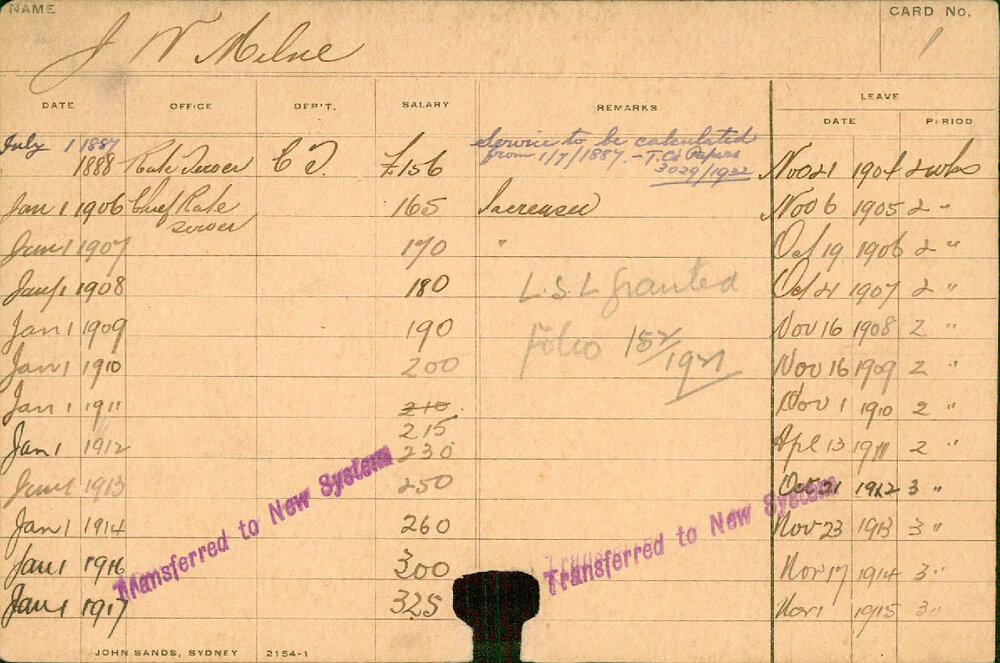 NAME
CARD No.
J W Milne
1
DATE OFFICE DEP'T. SALARY REMARKS LEAVE
DATE PERIOD
July 1 1887 Service to be calculated
from 1/7/1887. - T.C's Papers
3029/1922
1888 Rate Server C T. £156 Nov 21 1904 2 wks
Jan 1 1906 Chief Rate Server 165 Increased Nov 6 1905 2 "
Jan 1 1907 170 " Oct 19 1906 2 "
Jan 1 1908 180 L.S.L granted Oct 21 1907 2 "
Jan 1 1909 190 Folio 152/1921 Nov 16 1908 2 "
Jan 1 1910 200 Nov 16 1909 2 "
Jan 1 1911 210 Nov 1 1910 2 "
215
Jan 1 1912 230 Apl 13 1911 2 "
Jan 1 1913 250 Oct 21 1912 3 "
Jan 1 1914 260 Nov 23 1913 3 "
Jan 1 1916 300 Nov 17 1914 3 "
Jan 1 1917 325 Nov 1 1915 3 "
Transferred to New System
Transferred to New System
JOHN SANDS, SYDNEY 2154-1